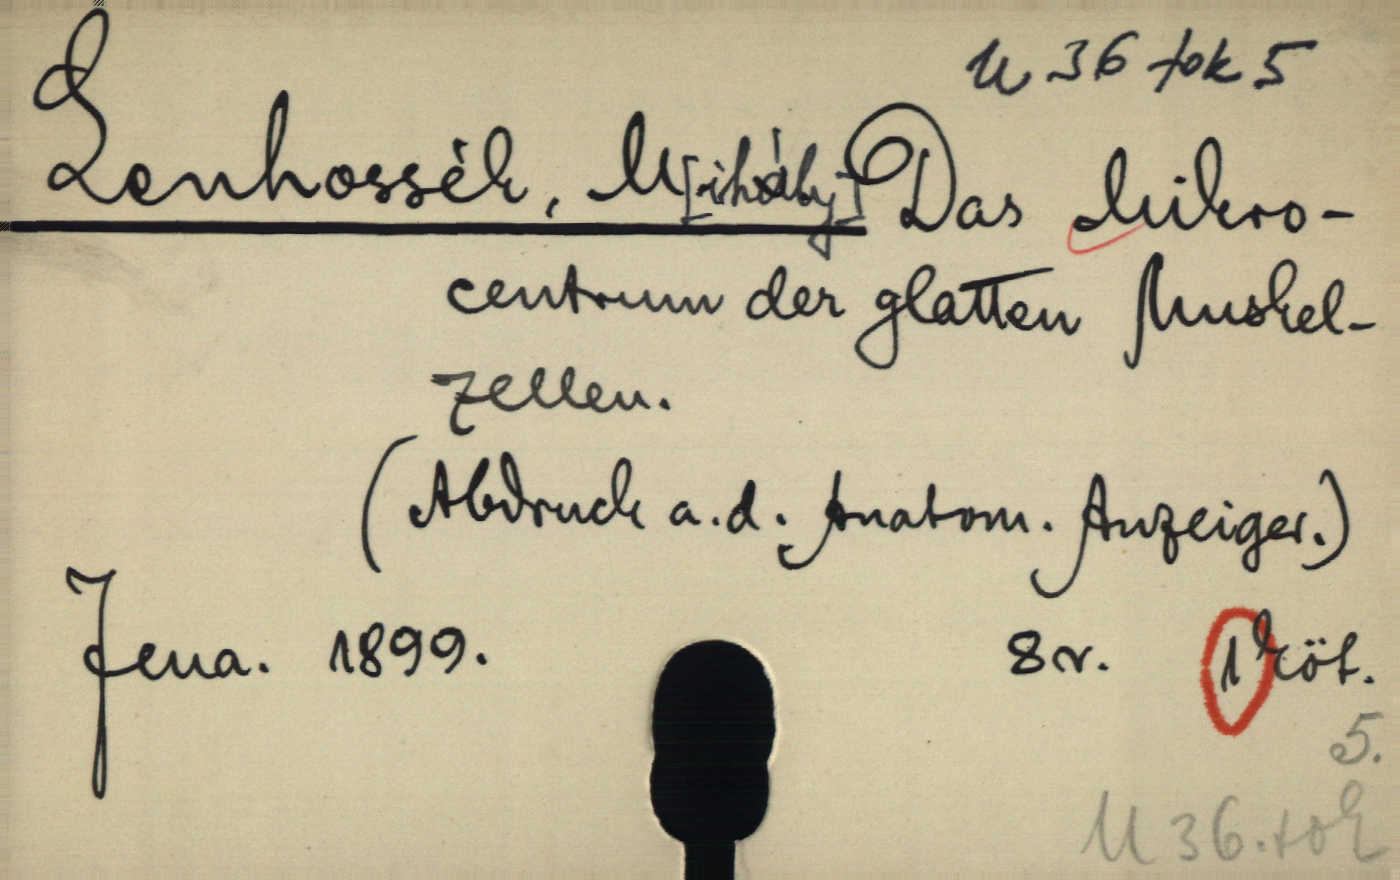 U 36 tok 5
Lenhossék, M[ihály] Das Mikro-
centrum der glatten Muskel-
zellen.
(Abdruck a. d. Anatom. Anzeiger.)
Jena. 1899. 8r. 1 köt.
5.
U 36. tok